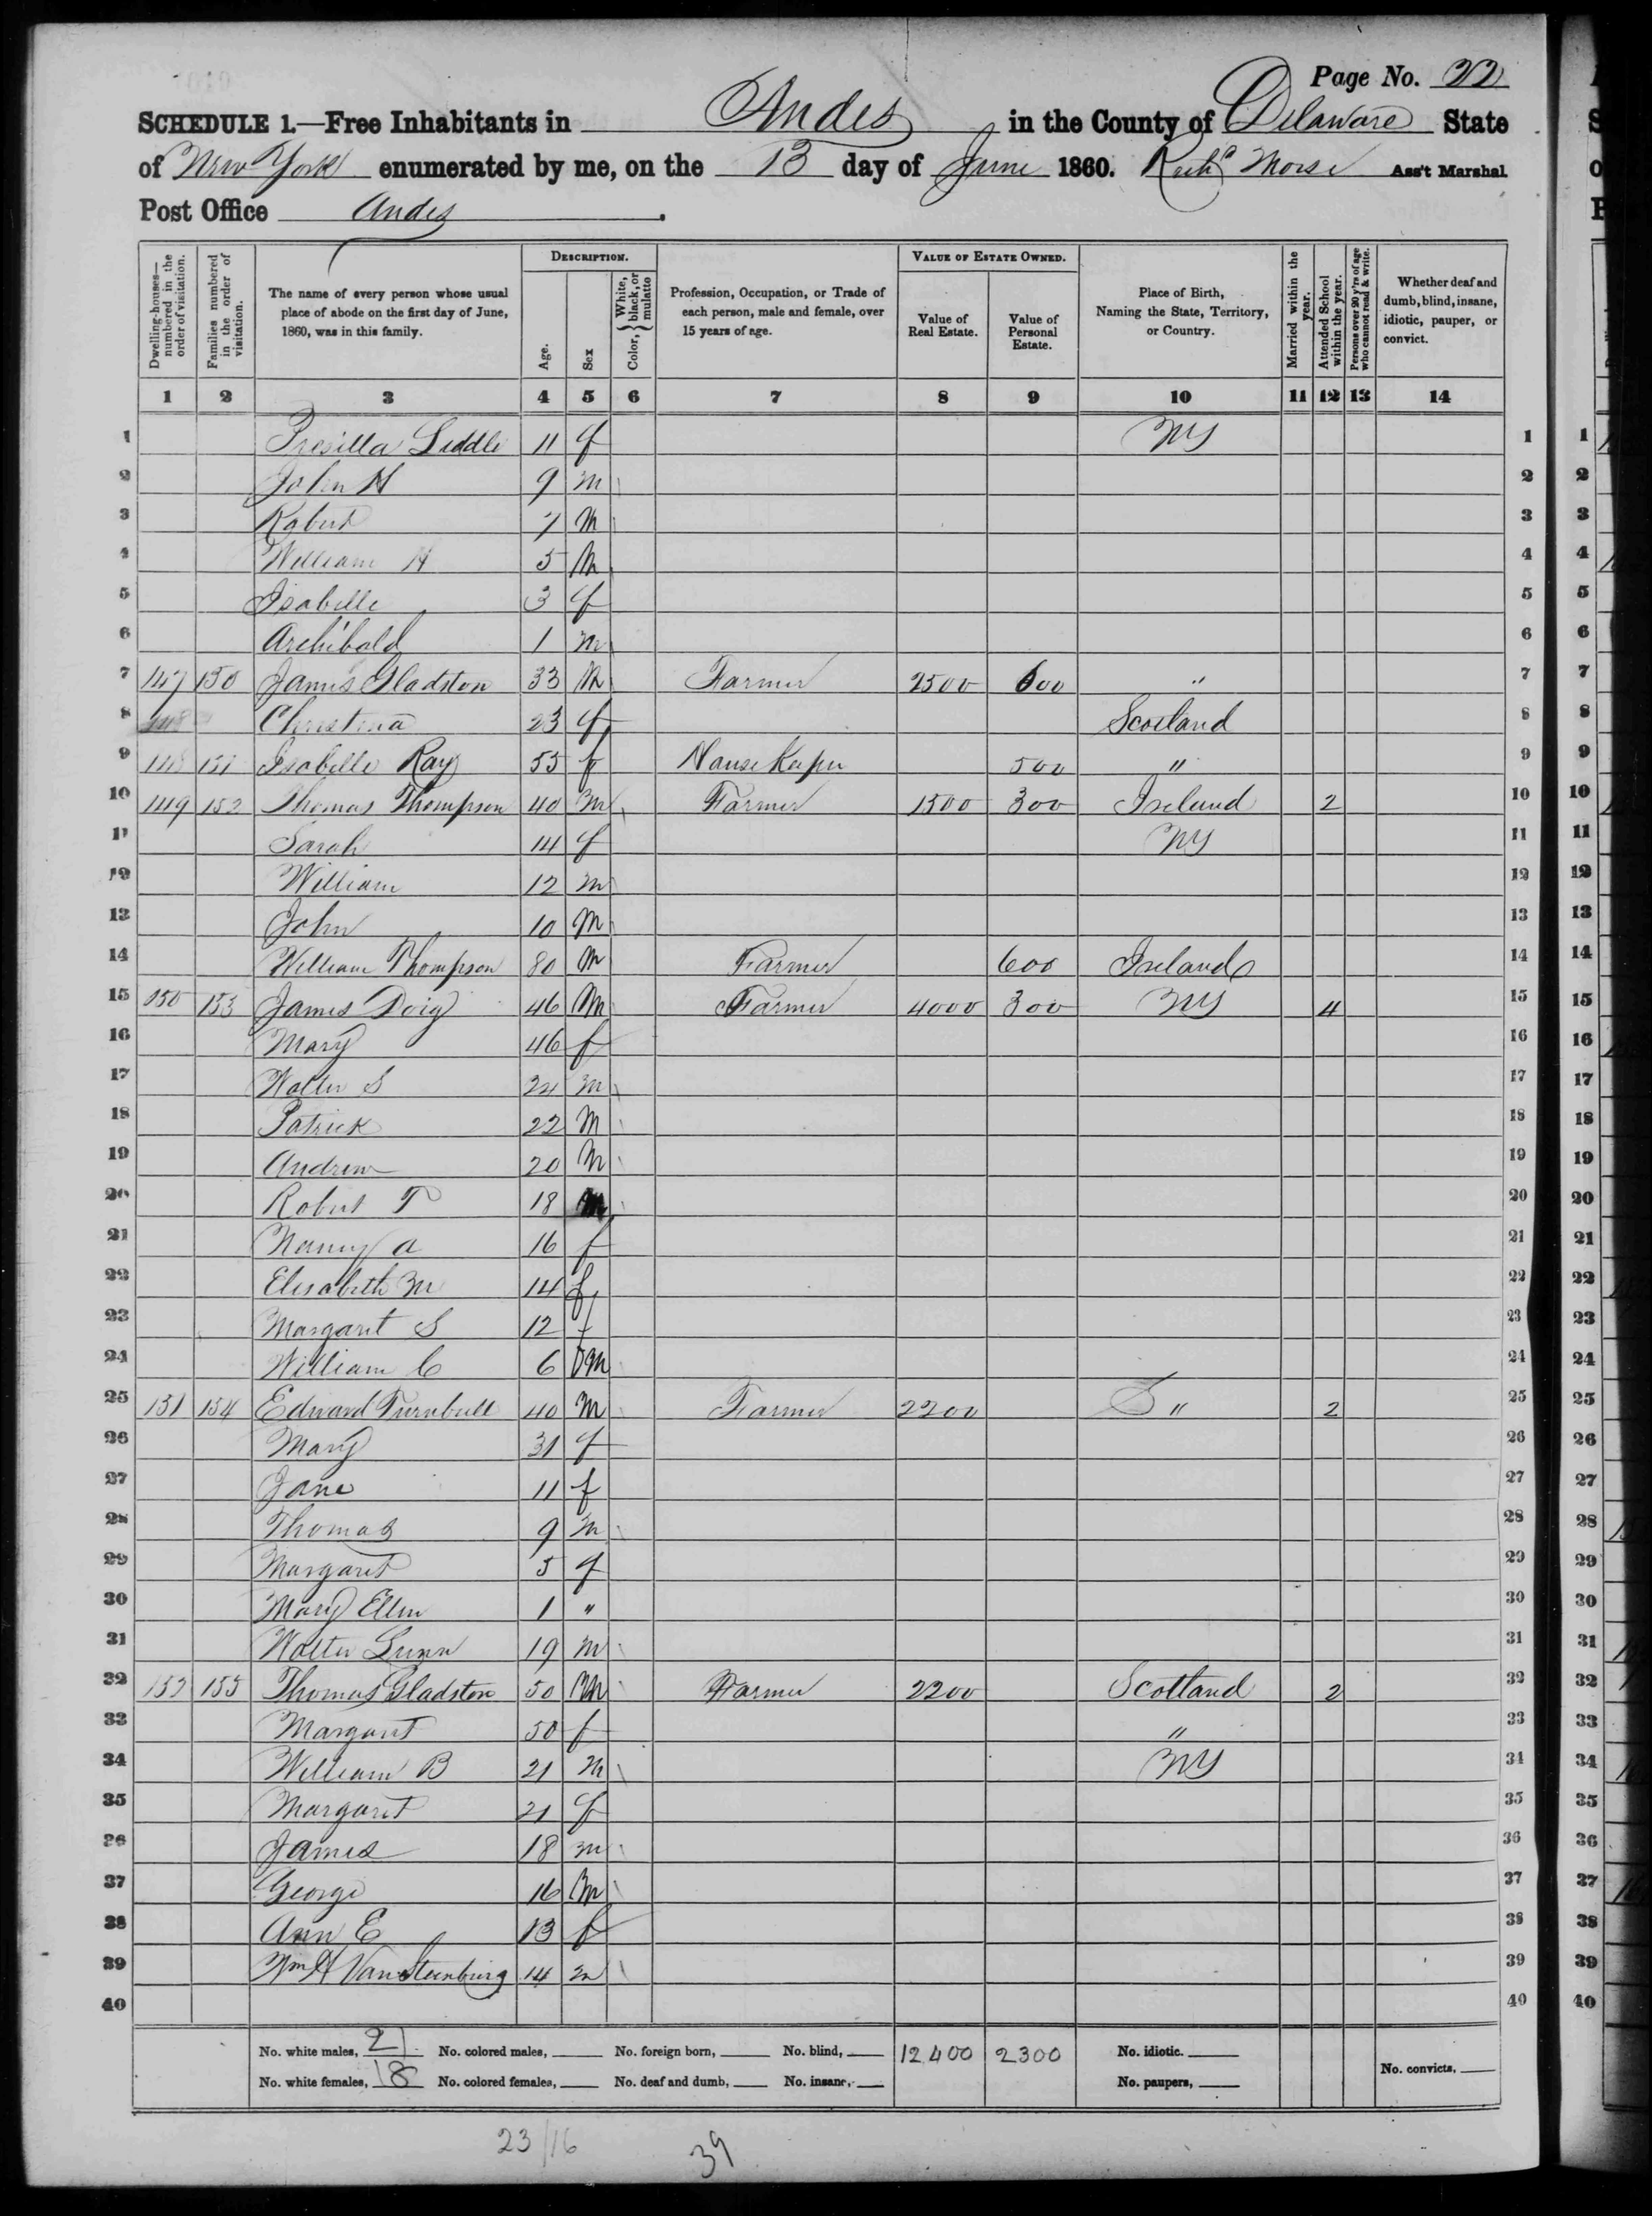 Page No. 22
SCHEDULE 1.—Free Inhabitants in Andes in the County of Delaware State
of New York enumerated by me, on the 13 day of June 1860. Morse Ass't Marshal
Post Office Andes.
Dwelling-houses—numbered in the order of visitation.
Families numbered in the order of visitation.
The name of every person whose usual place of abode on the first day of June, 1860, was in this family.
DESCRIPTION.
Age.
Sex
Color, { White, black, or mulatto
Profession, Occupation, or Trade of each person, male and female, over 15 years of age.
VALUE OF ESTATE OWNED.
Value of Real Estate.
Value of Personal Estate.
Place of Birth, Naming the State, Territory, or Country.
Married within the year.
Attended School within the year.
Persons over 20 y'rs of age who cannot read & write.
Whether deaf and dumb, blind, insane, idiotic, pauper, or convict.
1 2 3 4 5 6 7 8 9 10 11 12 13 14
1 Presilla Liddle 11 f NY 1
2 John H 9 m 2
3 Robert 7 m 3
4 William H 5 m 4
5 Isabelle 3 f 5
6 Archibald 1 m 6
7 147 150 James Gladston 33 m Farmer 2500 600 " 7
8 148 Christina 23 f Scotland 8
9 148 151 Isabelle Ray 55 f House Keeper 500 " 9
10 149 152 Thomas Thompson 40 m Farmer 1500 300 Ireland 2 10
11 Sarah 14 f NY 11
12 William 12 m 12
13 John 10 m 13
14 William Thompson 80 m Farmer 600 Ireland 14
15 150 153 James Doig 46 m Farmer 4000 300 NY 4 15
16 Mary 46 f 16
17 Walter S 24 m 17
18 Patrick 22 m 18
19 Andrew 20 m 19
20 Robert T 18 m 20
21 Nancy A 16 f 21
22 Elisabeth M 14 f 22
23 Margaret S 12 f 23
24 William C 6 m 24
25 151 154 Edward Turnbull 40 m Farmer 2200 S " 2 25
26 Mary 31 f 26
27 Jane 11 f 27
28 Thomas 9 m 28
29 Margaret 5 f 29
30 Mary Ellen 1 " 30
31 Walter Gunn 19 m 31
32 152 155 Thomas Gladston 50 m Farmer 2200 Scotland 2 32
33 Margaret 50 f " 33
34 William B 21 m NY 34
35 Margaret 21 f 35
36 James 18 m 36
37 George 16 m 37
38 Ann E 13 f 38
39 Wm H VanSteenburg 14 m 39
40 40
No. white males, 21 No. colored males, No. foreign born, No. blind, 12400 2300 No. idiotic. No. convicts,
No. white females, 18 No. colored females, No. deaf and dumb, No. insane, No. paupers,
23/16 39